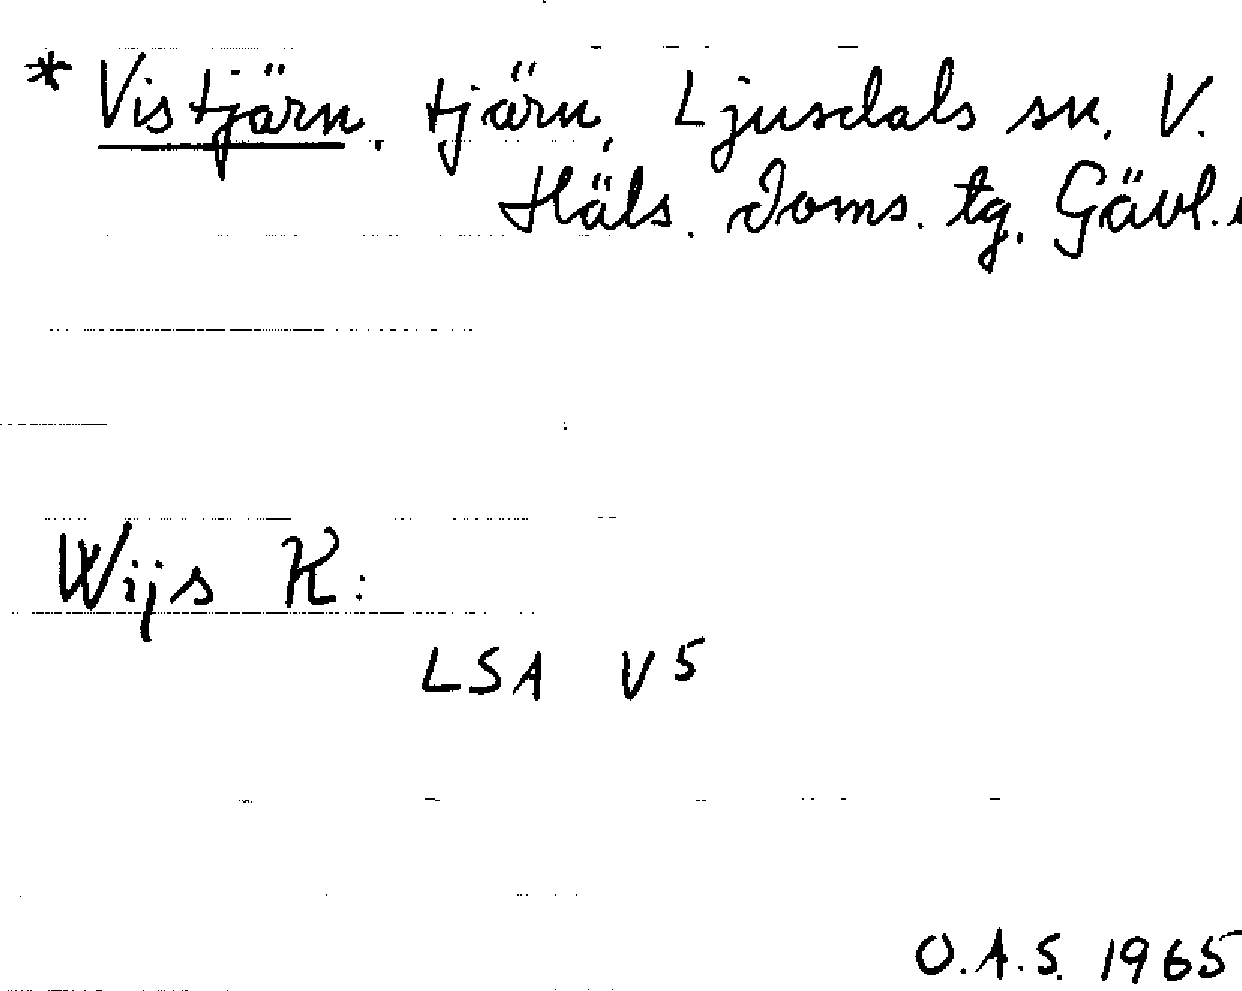 * Vistjärn, tjärn, Ljusdals sn, V.
Häls. Doms. tg, Gävl.
Wijs K:
LSA V 5
O.A.S. 1965